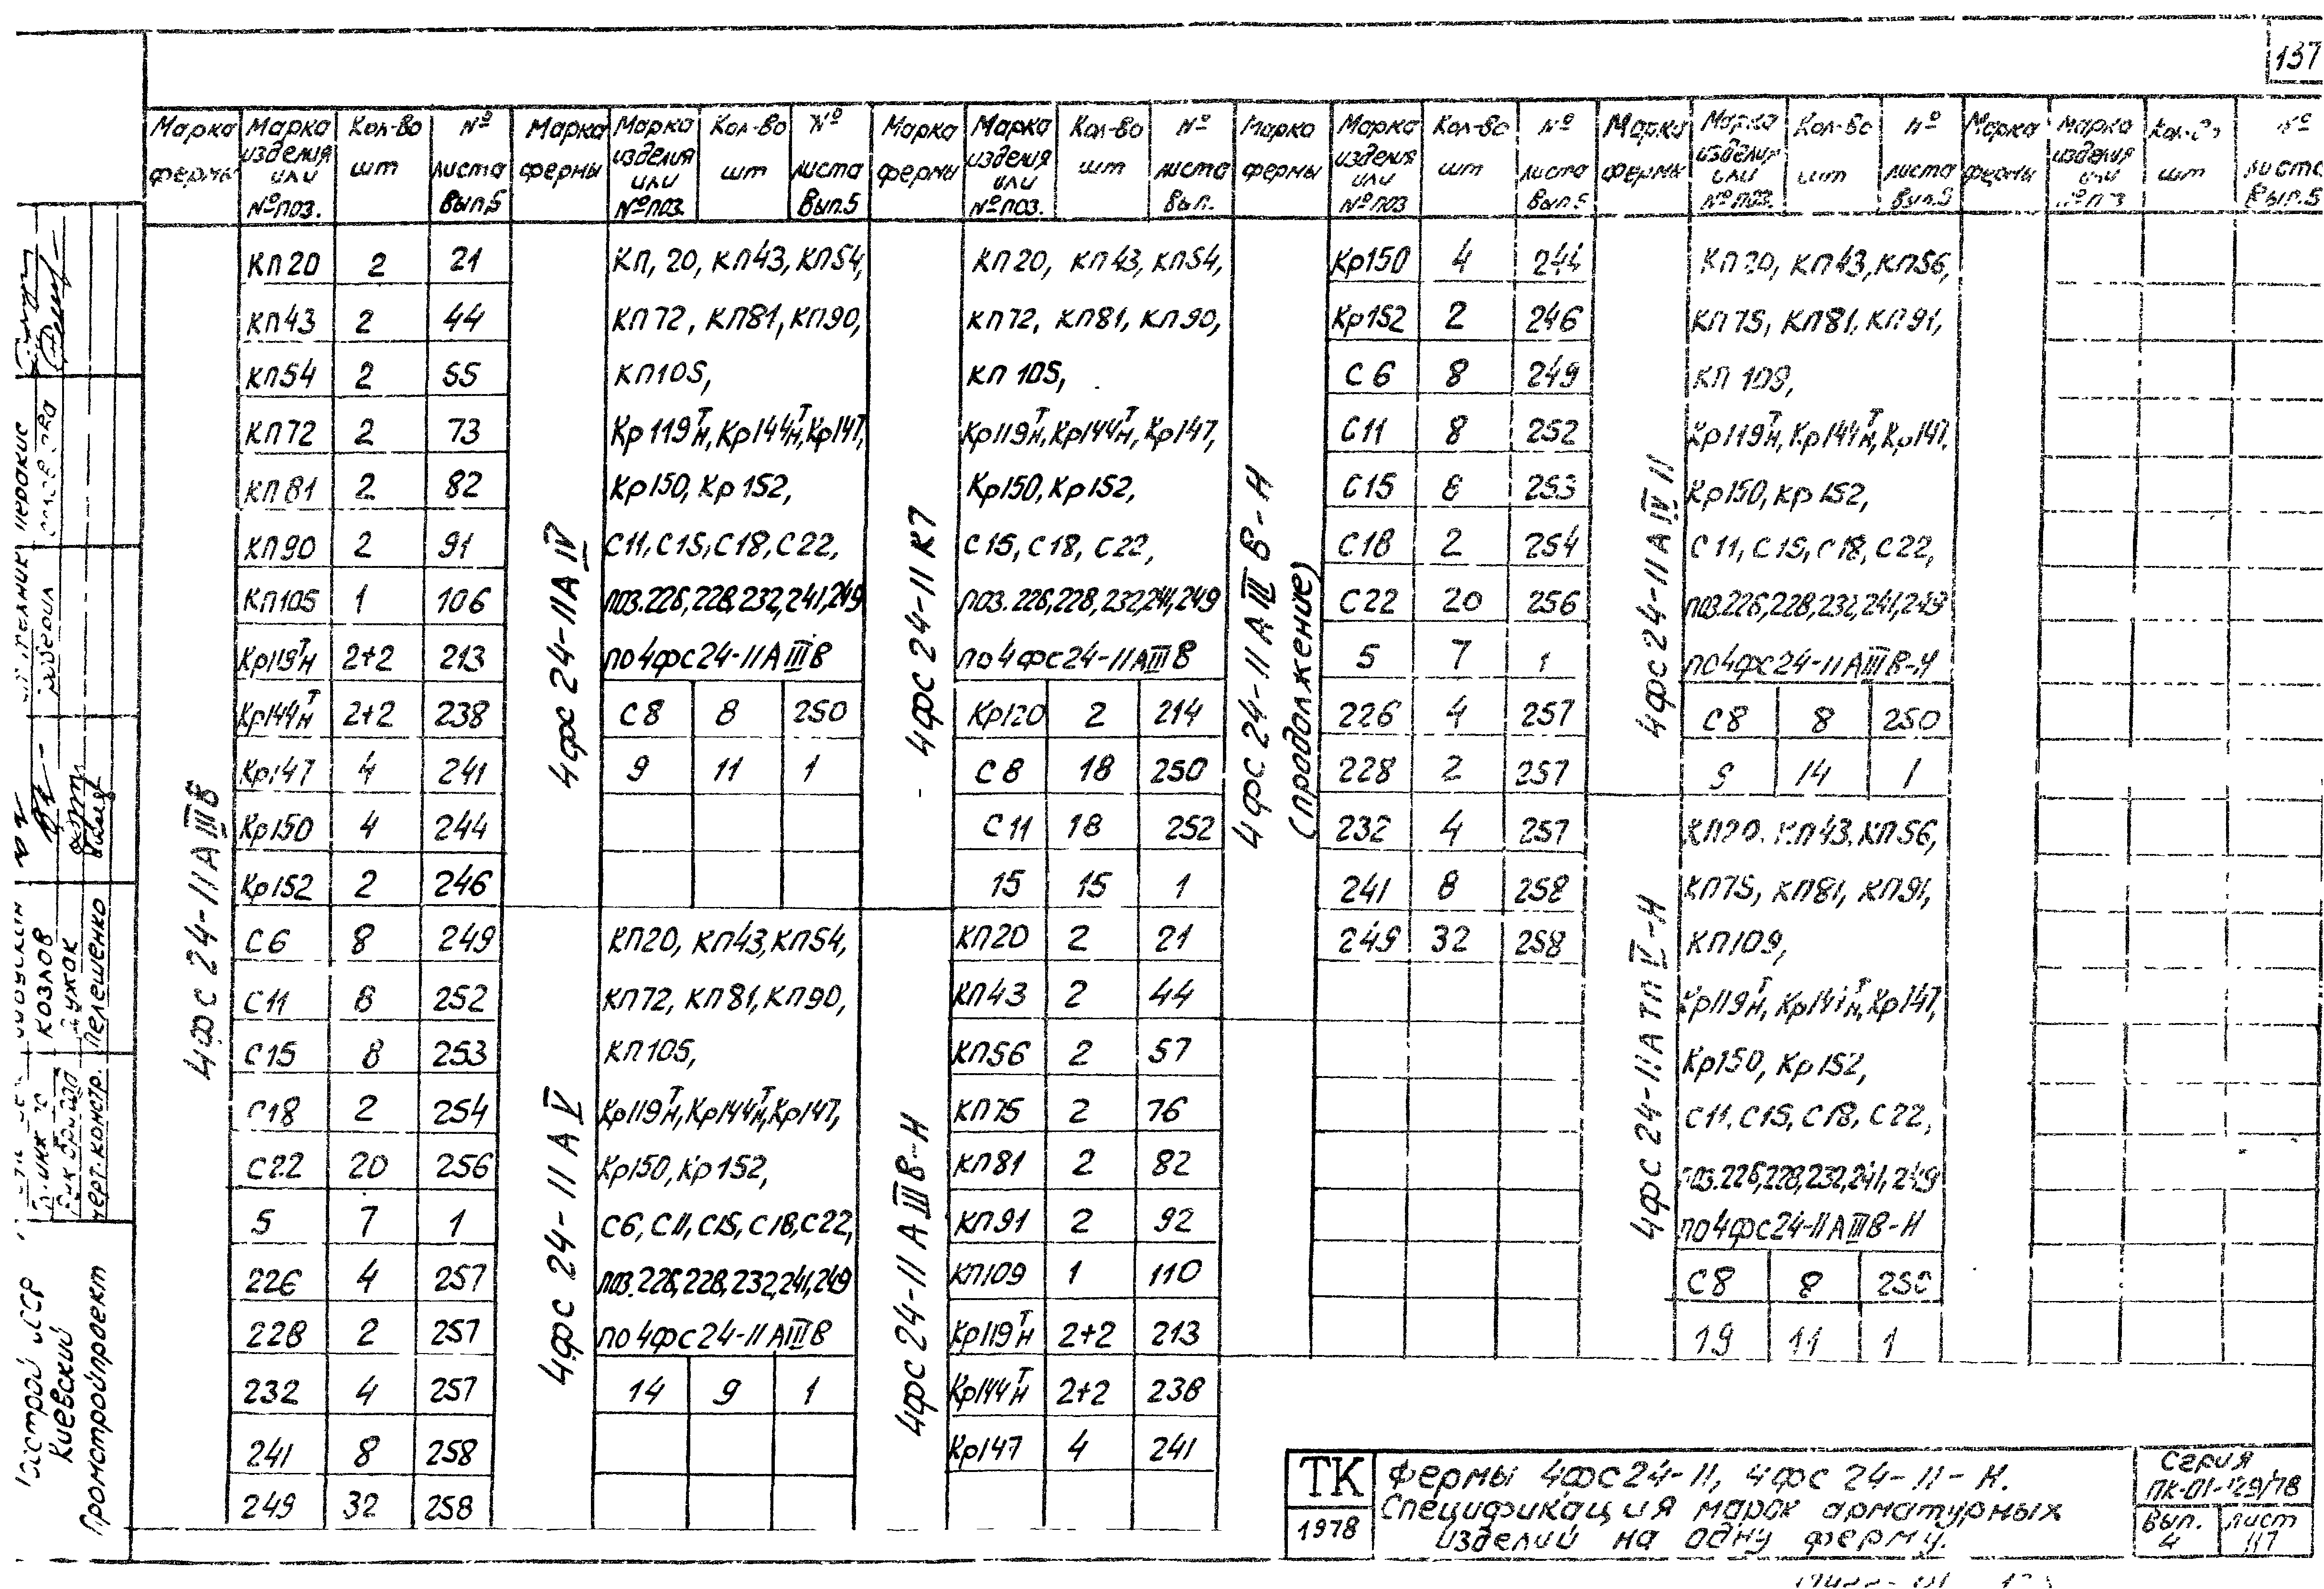 137
Марка фермы | Марка изделия или №поз. | Кол-во шт | № листа Вып.5 | Марка фермы | Марка изделия или №поз | Кол-во шт | № листа Вып.5 | Марка фермы | Марка изделия или №поз. | Кол-во шт | № листа Вып. | Марка фермы | Марка изделия или №поз | Кол-во шт | № листа Вып.5 | Марка фермы | Марка изделия или №поз. | Кол-во шт | № листа Вып.5 | Марка фермы | Марка изделия или №поз | Кол-во шт | № листа Вып.5
4фс 24-II АIIIВ
КП20 2 21
КП43 2 44
КП54 2 55
КП72 2 73
КП81 2 82
КП90 2 91
КП105 1 106
Кр119Тн 2+2 213
Кр144Тн 2+2 238
Кр147 4 241
Кр150 4 244
Кр152 2 246
С6 8 249
С11 8 252
С15 8 253
С18 2 254
С22 20 256
5 7 1
226 4 257
228 2 257
232 4 257
241 8 258
249 32 258
4фс 24-IIАIV
КП, 20, КП43, КП54,
КП72, КП81, КП90,
КП105,
Кр119Тн, Кр144Тн, Кр147,
Кр150, Кр152,
С11, С15, С18, С22,
поз.226,228,232,241,249
по 4фс24-IIАIIIВ
С8 8 250
9 11 1
4фс 24-II АV
КП20, КП43, КП54,
КП72, КП81, КП90,
КП105,
Кр119Тн, Кр144Тн, Кр147,
Кр150, Кр152,
С6, С11, С15, С18, С22,
поз.226,228,232,241,249
по 4фс24-IIАIIIВ
14 9 1
4фс 24-II К7
КП20, КП43, КП54,
КП72, КП81, КП90,
КП 105,
Кр119Тн, Кр144Тн, Кр147,
Кр150, Кр152,
С15, С18, С22,
поз.226,228,232,241,249
по 4фс24-IIАIIIВ
Кр120 2 214
С8 18 250
С11 18 252
15 15 1
4фс 24-II АIIIВ-Н
КП20 2 21
КП43 2 44
КП56 2 57
КП75 2 76
КП81 2 82
КП91 2 92
КП109 1 110
Кр119Тн 2+2 213
Кр144Тн 2+2 238
Кр147 4 241
4фс 24-II АIIIВ-Н
(продолжение)
Кр150 4 244
Кр152 2 246
С6 8 249
С11 8 252
С15 8 253
С18 2 254
С22 20 256
5 7 1
226 4 257
228 2 257
232 4 257
241 8 258
249 32 258
4фс 24-IIАIV
КП20, КП43, КП56,
КП75, КП81, КП91,
КП 109,
Кр119Тн, Кр144Тн, Кр147,
Кр150, Кр152,
С11, С15, С18, С22,
поз.226,228,232,241,249
по 4фс24-IIАIIIВ-Н
С8 8 250
9 14 1
4фс 24-IIАТпV-Н
КП20, КП43, КП56,
КП75, КП81, КП91,
КП109,
Кр119Тн, Кр144Тн, Кр147,
Кр150, Кр152,
С11, С15, С18, С22,
поз.226,228,232,241,249
по 4фс24-IIАIIIВ-Н
С8 8 250
19 11 1
Козлов
Пелешенко
черт.констр.
Киевский
Промстройпроект
ТК
1978
Фермы 4фс24-II, 4фс 24-II-Н.
Спецификация марок арматурных
изделий на одну ферму.
Серия
ПК-01-129/78
Вып. 4
лист 117